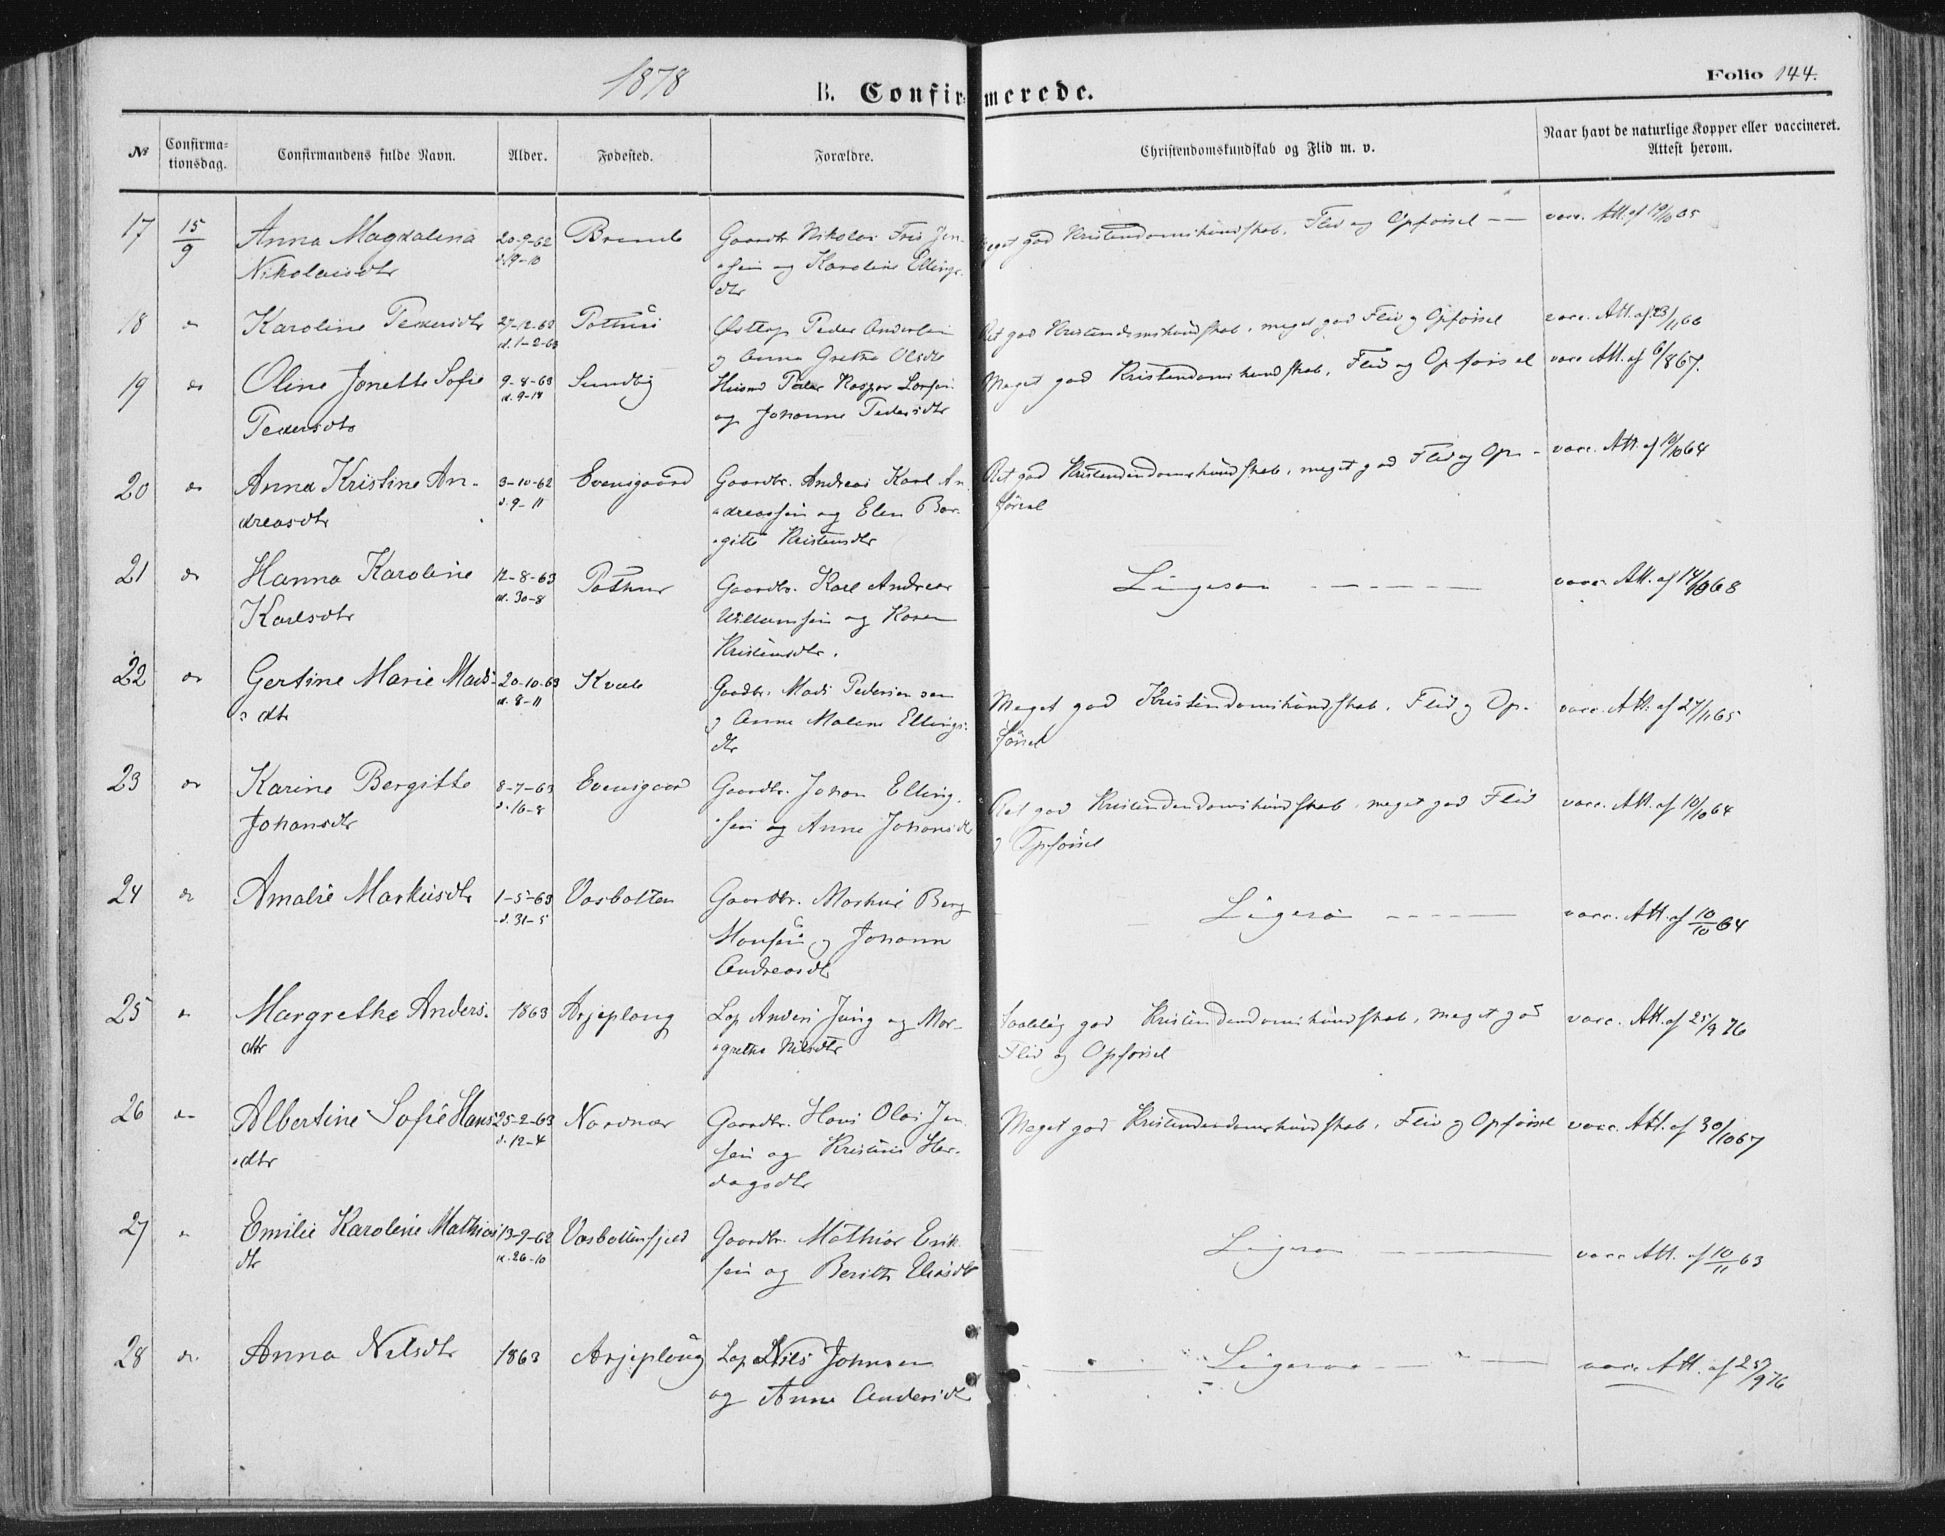 1878
B. Confirmerede.
Folio 144.
№ Confirmationsdag. Confirmandens fulde Navn. Alder. Fødested. Forældre. Christendomskundskab og Flid m. v. Naar havt de naturlige Kopper eller vaccineret. Attest herom.
17 15/9 Anna Magdalena 20-9-62 Gaardbr Nikolai Fris Jen- god Kristendomskundskab, Flid og Opførsel -- vacc. Att. af 19/10 65
Nikolaisdtr d. 19-10 sen og Karoline Ellings
dtr
18 do Karoline Pedersdtr 27-12-63 Peder Andersen Ret god Kristendomskundskab, meget god Flid og Opførsel vacc. Att. af 23/11 66
d. 1-2-63 og Anna Grethe Olsdtr
19 do Oline Jonette Sofie 9-8-63 Sundby Husmd Peder Kaspar Larsen Meget god Kristendomskundskab, Flid og Opførsel vacc Att. af 6/8 67.
Pedersdtr d. 9-14 og Johanne Pedersdtr
20 do Anna Kristine An- 3-10-62 Evensgaard Gaardbr. Andreas Karl An Ret god Kristendomskundskab, meget god Flid og Op- vacc. Att. af 10/10 64
dreasdtr d. 9-11 dreassen og Elen Ber- førsel
gitte Kristensdtr
21 do Hanna Karoline 12-8-63 Pothus Gaardbr. Karl Andreas Ligesaa ------ vacc. Att. af 14/10 68
Karlsdtr d. 30-8 Willumsen og Karen
Kristensdtr.
22 do Gertine Marie Mads- 20-10-63 Kvale Gaardbr. Mads Pedersen Meget god Kristendomskundskab, Flid og Op- vacc. Att. af 27/11 65
s dtr d. 8-11 og Anne Malene Ellings- førsel
dtr
23 do Karine Bergitte 8-7-63 Evensgaard Gaardbr. Johan Elling- Ret god Kristendomskundskab, meget god Flid vacc. Att. af 10/10 64
Johansdtr d. 16-8 sen og Anne Johansdtr og Opførsel
24 do Amalie Markusdtr 1-5-63 Vasbotten Gaardbr. Markus Berg Ligesaa ----- vacc. Att. af 10/10 64
d. 31-5 Monsen og Johanna
Andreasdtr
25 do Margrethe Anders- 1863 Arjeplong Lap Anders Jung og Mar- god Kristendomskundskab, meget god vacc. Att. af 25/9 76
dtr grethe Nilsdtr Flid og Opførsel
26 do Albertine Sofie Hans 25-2-63 Nordnæs Gaardbr. Hans Olai Jen Meget god Kristendomskundskab, Flid og Opførsel vacc. Att. af 30/10 67
dtr d. 12-4 sen og Kristine Her-
dagsdtr
27 do Emilie Karoline Mathias 13-9-62 Vasbottenfjeld Gaardbr. Mathias Erik Ligesaa vacc Att. af 10/11 63
dtr d. 26-10 sen og Berith Eliasdtr
28 do Anna Nilsdtr 1863 Arjeploug Lap Nils Johnsen Ligesaa vacc. Att. af 25/9 76
og Anne Andersdtr